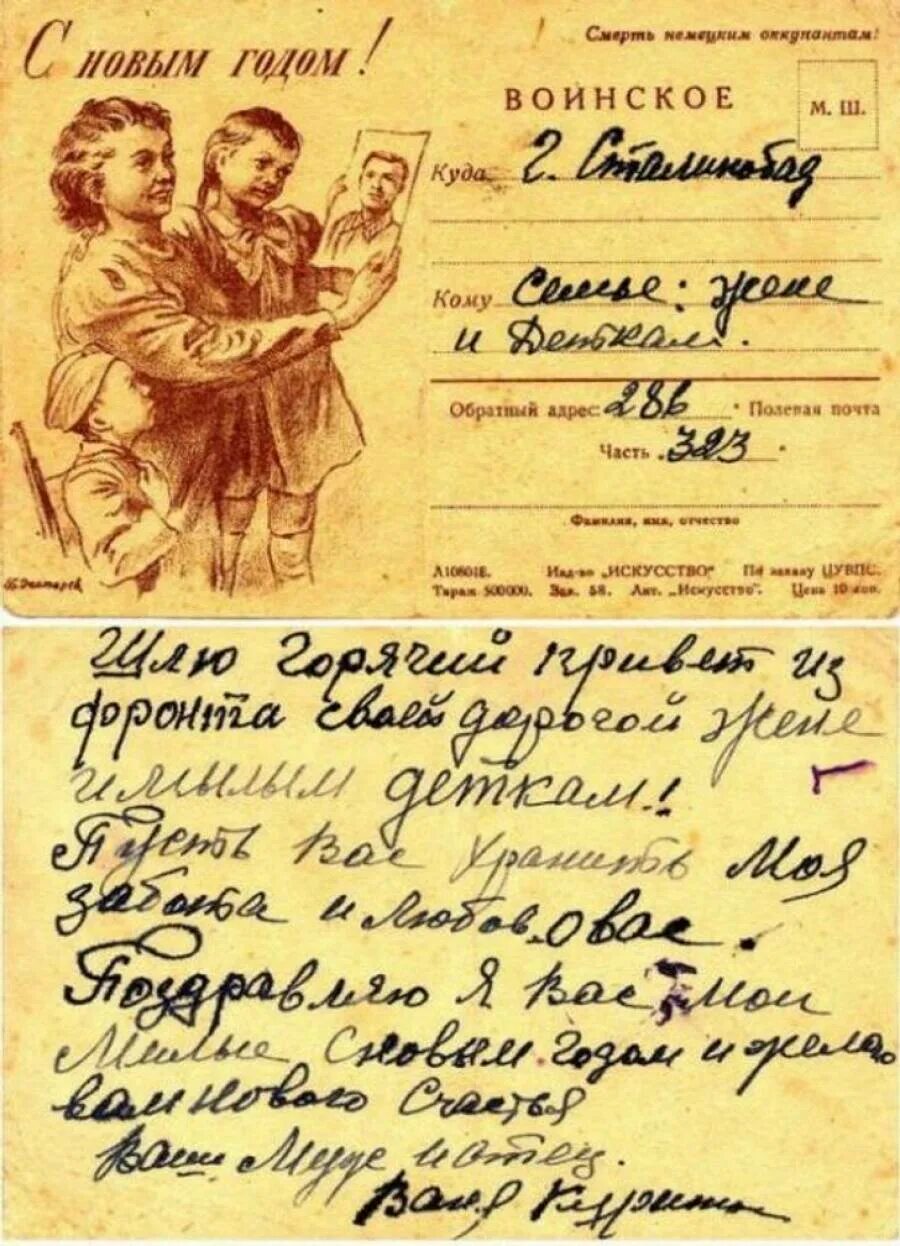 С новым годом!
Смерть немецким оккупантам!
ВОИНСКОЕ
М. Ш.
Куда г. Сталинобад
Кому Семье: жене
и Деткам.
Обратный адрес: 286 Полевая почта
Часть 323
Фамилия, имя, отчество
Изд-во „ИСКУССТВО" По заказу ЦУВПС.
Тираж 500000. Зак. 58. Лит. „Искусство". Цена 10 коп.
Шлю горячий привет из
фронта своей дорогой жене
и милым деткам!
Пусть Вас хранить Моя
забота и любов о вас.
Поздравляю Я Вас Мои
Милые С новым годом и желаю
вам нового Счастья
Ваш Муж и отец.
Ваня